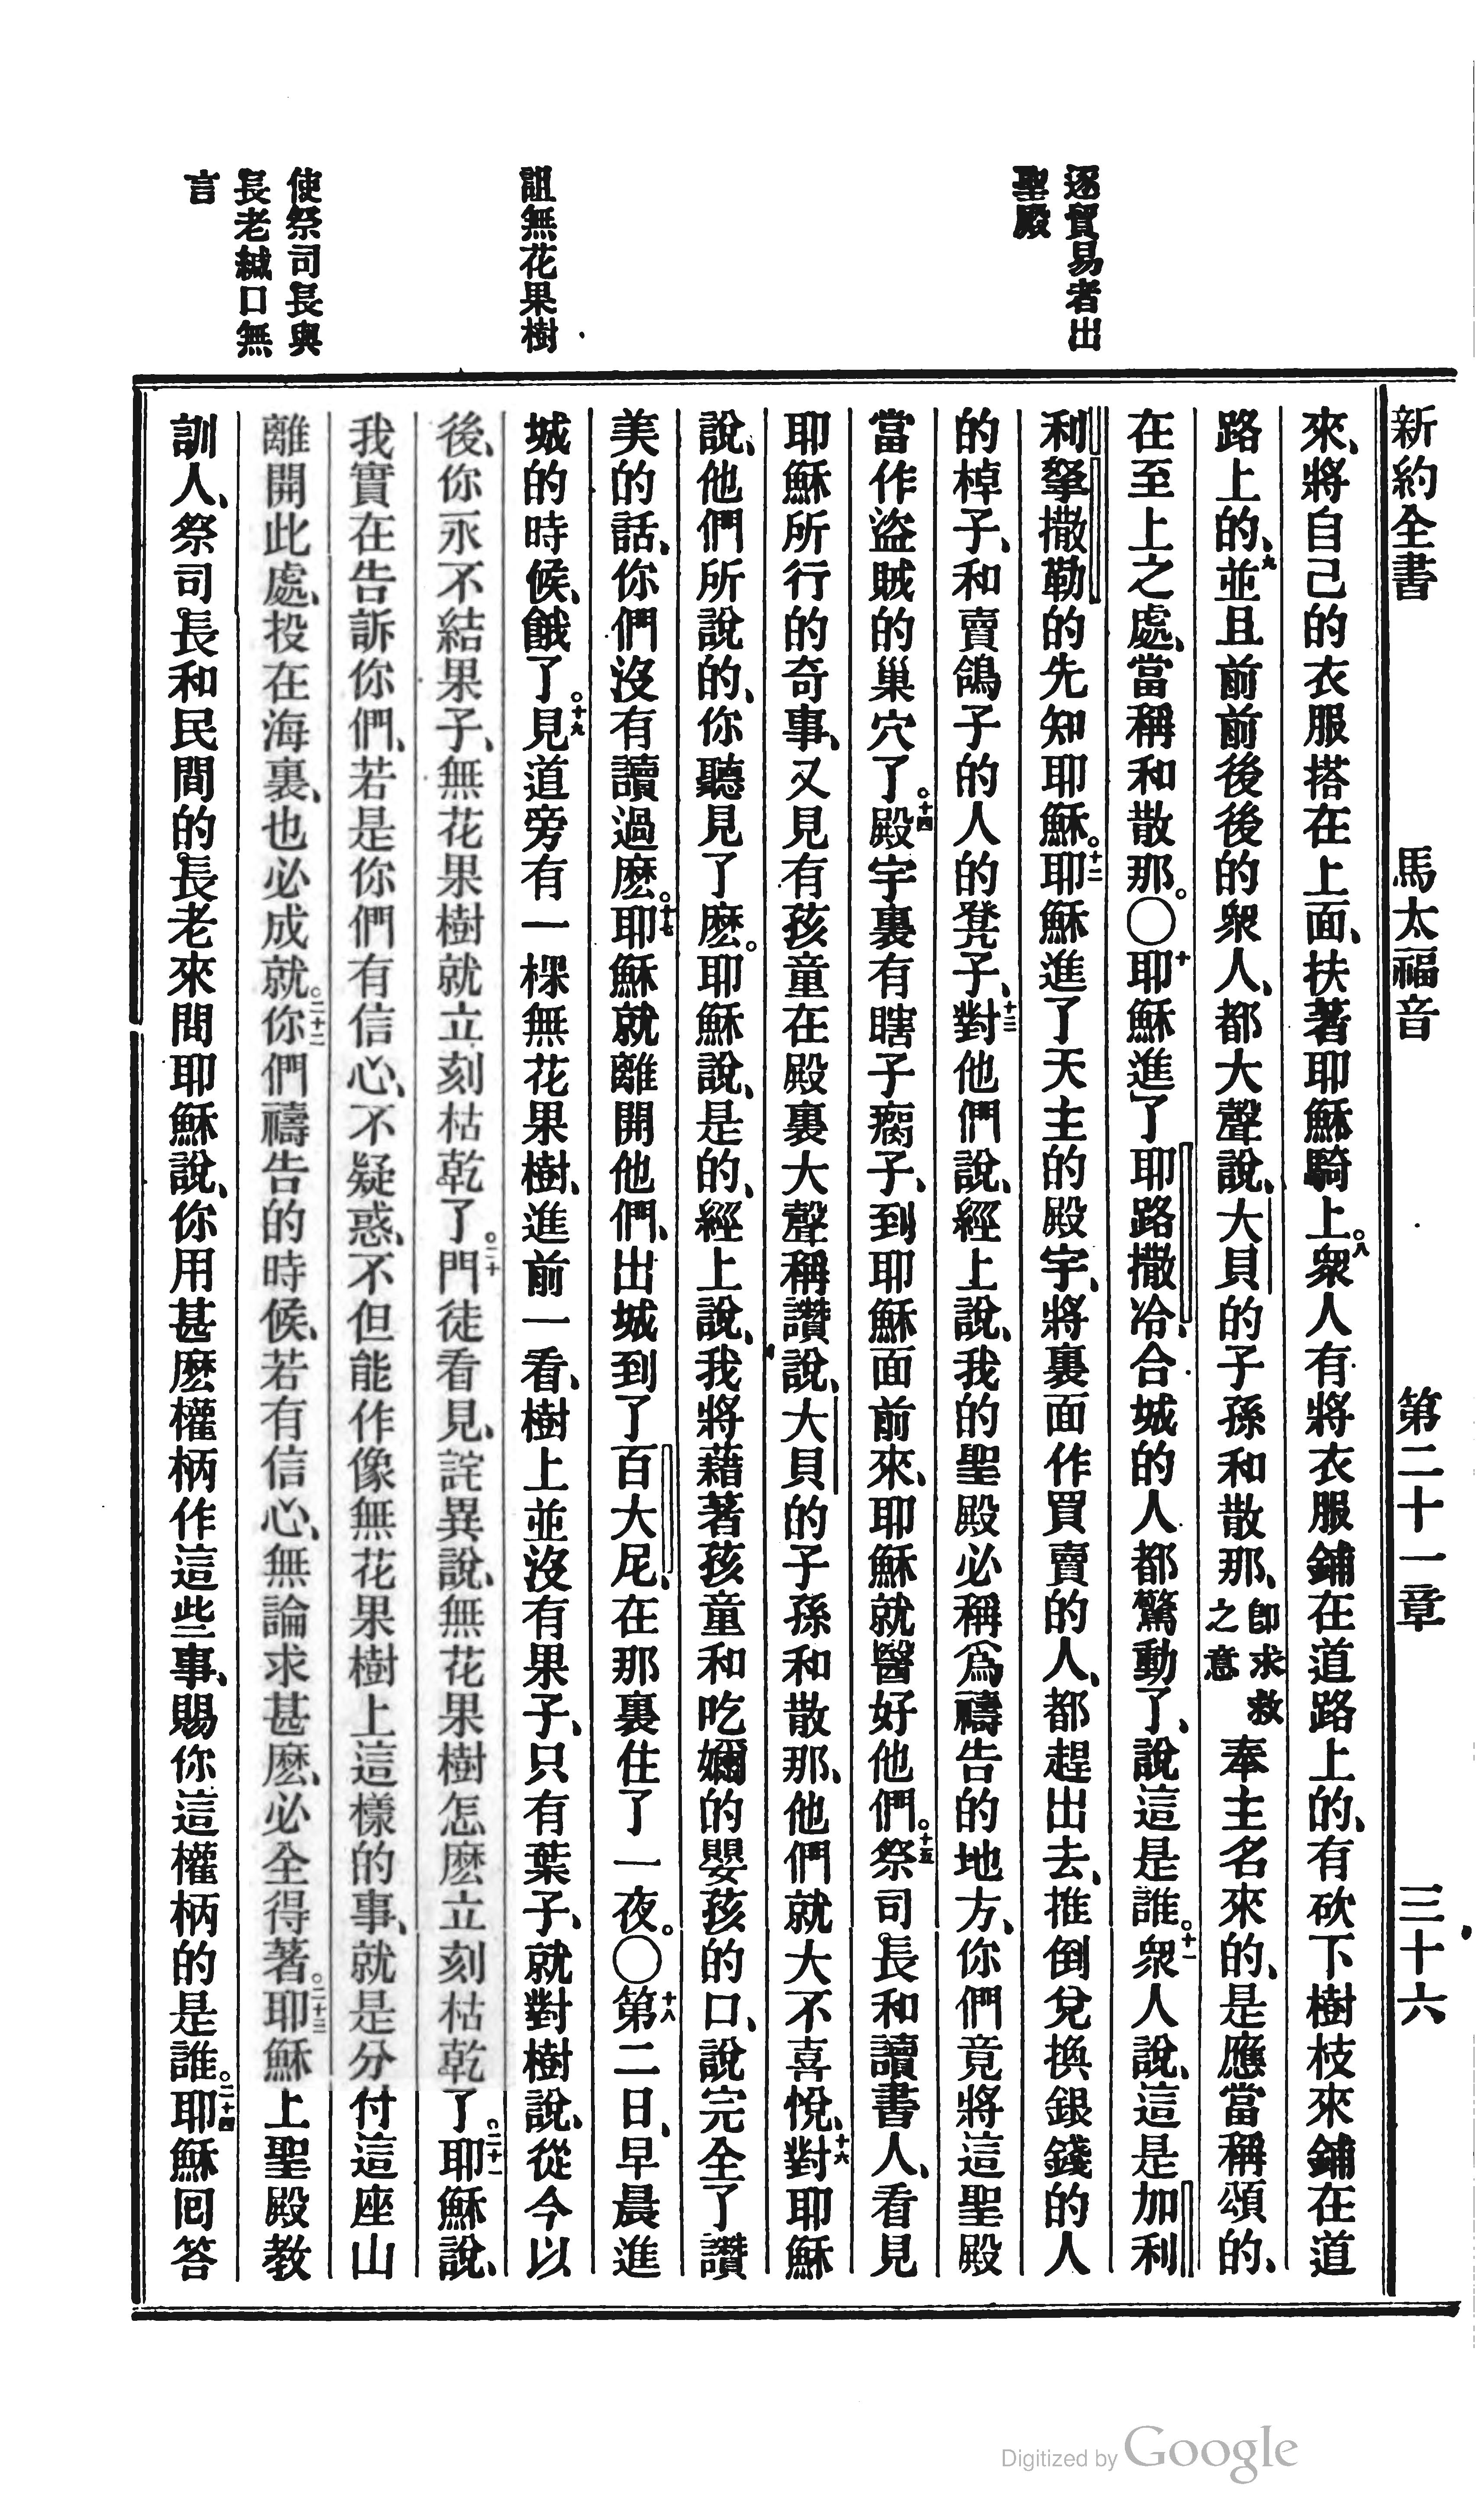 新約全書 馬太福音 第二十一章 三十六
來、將自己的衣服搭在上面、扶著耶穌騎上。八衆人有將衣服鋪在道路上的、有砍下樹枝來鋪在道
路上的、九並且前前後後的衆人、都大聲說、大貝的子孫和散那、卽求救之意奉主名來的、是應當稱頌的、
在至上之處、當稱和散那。〇十耶穌進了耶路撒冷、合城的人都驚動了、說這是誰。十一衆人說、這是加利
利拏撒勒的先知耶穌。十二耶穌進了天主的殿宇、將裏面作買賣的人、都趕出去、推倒兌換銀錢的人
的棹子、和賣鴿子的人的凳子、十三對他們說、經上說、我的聖殿必稱爲禱告的地方、你們竟將這聖殿
當作盜賊的巢穴了。十四殿宇裏有瞎子瘸子、到耶穌面前來、耶穌就醫好他們。十五祭司長和讀書人、看見
耶穌所行的奇事、又見有孩童在殿裏大聲稱讚說、大貝的子孫和散那、他們就大不喜悅、十六對耶穌
說、他們所說的、你聽見了麽。耶穌說、是的、經上說、我將藉著孩童和吃嬭的嬰孩的口、說完全了讚
美的話、你們沒有讀過麽。十七耶穌就離開他們、出城到了百大尼、在那裏住了一夜。〇十八第二日、早晨進
城的時候、餓了。十九見道旁有一棵無花果樹、進前一看、樹上並沒有果子、只有葉子、就對樹說、從今以
後、你永不結果子、無花果樹就立刻枯乾了。二十門徒看見、詫異說、無花果樹怎麽立刻枯乾了。二十一耶穌說、
我實在告訴你們、若是你們有信心、不疑惑、不但能作像無花果樹上這樣的事、就是分付這座山
離開此處、投在海裏、也必成就。二十二你們禱告的時候、若有信心、無論求甚麽、必全得著。二十三耶穌上聖殿教
訓人、祭司長和民間的長老來問耶穌說、你用甚麽權柄作這些事、賜你這權柄的是誰。二十四耶穌回答
逐貿易者出
聖殿
詛無花果樹
使祭司長與
長老緘口無
言
Digitized by Google